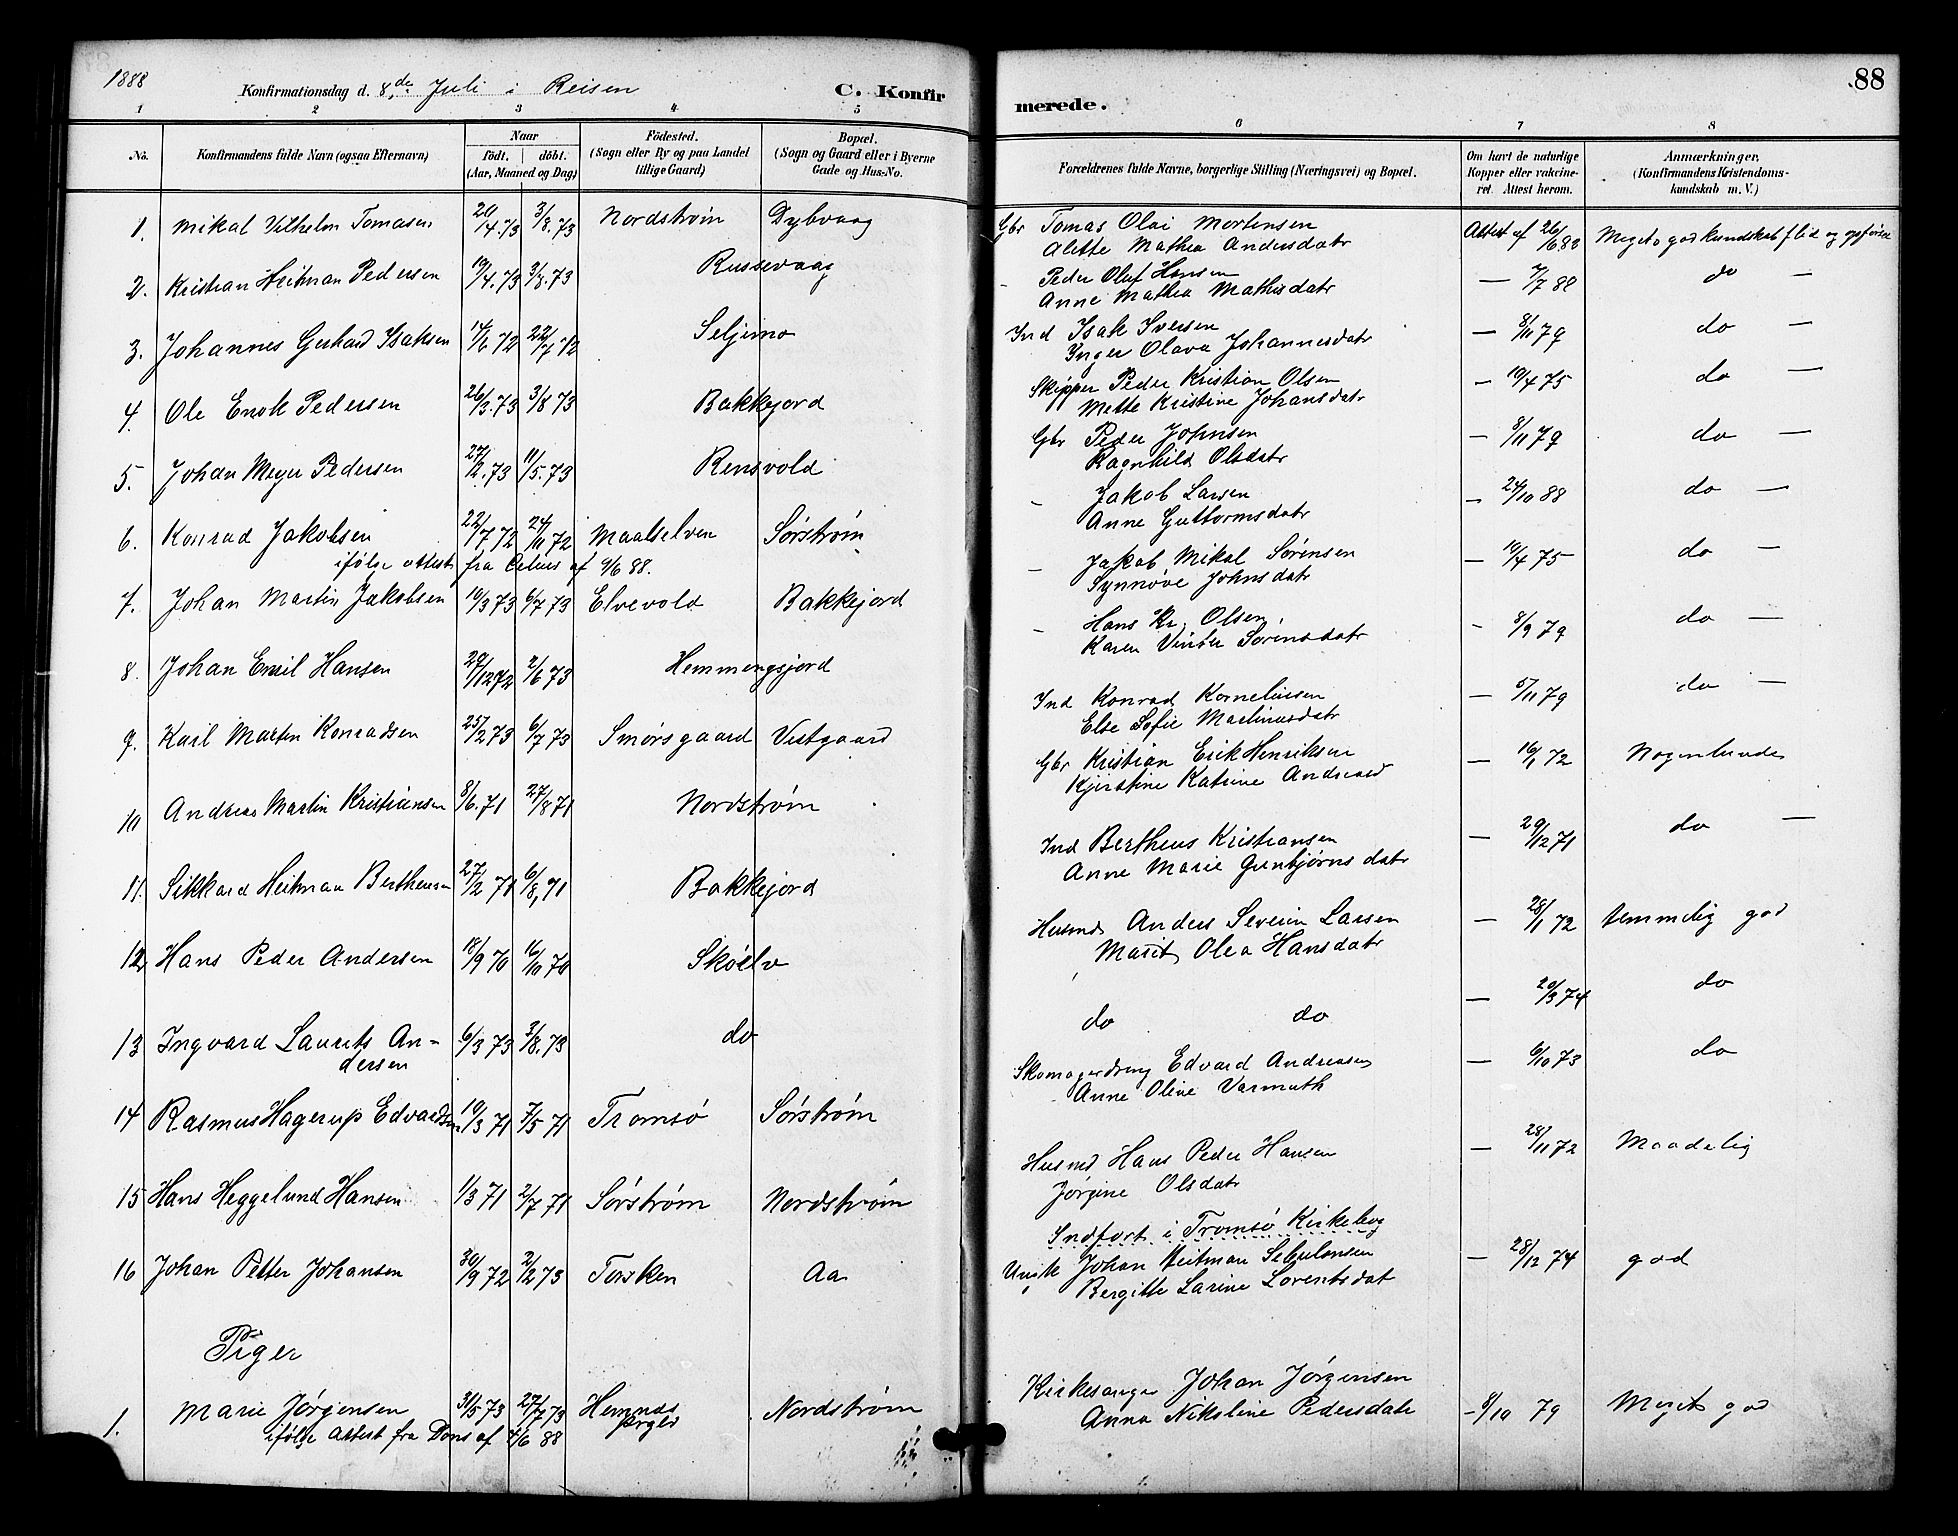 1888
Konfirmationsdag d. 8,de Juli i Reisen
C. Konfir
merede.
88
1 2 3 4 5 6 7 8
No.
Konfirmandens fulde Navn (ogsaa Efternavn)
Naar
födt. döbt.
(Aar, Maaned og Dag)
Födested.
(Sogn eller By og paa Landet
tillige Gaard)
Bopæl.
(Sogn og Gaard eller i Byerne
Gade og Hus-No.
Forældrenes fulde Navne, borgerlige Stilling (Næringsvei) og Bopæl.
Om havt de naturlige
Kopper eller vakcine-
ret. Attest herom.
Anmærkninger,
(Konfirmandens Kristendoms-
kundskab m. V.)
1. Mikal Vilhelm Tomasen 20/4.73 3/8.73 Nordstrøm Dybvaag
Gbr Tomas Olai Mortensen Attest af 26/6 88 Meget god kundskab flid og opførsel
Alette Mathea Andersdatr
2. Kristian Heitman Pedersen 19/4.73 3/8.73 Russevaag
- Peder Oluf Hansen — 7/7 88 do —
Anne Mathea Mathisdatr
3. Johannes Gerhard Isaksen 14/6 72 22/7 72 Seljemo
Ind Isak Iversen — 8/11 79 do —
Inger Olava Johannesdatr
4. Ole Enok Pedersen 26/3.73 3/8 73 Bakkejord
Skipper Peder Kristian Olsen — 19/4 75 do —
Mette Kristine Johansdatr
5. Johan Meyer Pedersen 27/2.73 11/5.73 Rensvold
Gbr Peder Johnsen — 8/11 79 do —
Ragnhild Olsdatr
6. Konrad Jakobsen 22/7 72 24/11 72 Maalselven Sørstrøm
ifølge attest fra Celius af 9/6 88.
- Jakob Larsen — 24/10 88 do —
Anne Guttormsdatr
7. Johan Martin Jakobsen 10/3 73 6/7 73 Elvevold Bakkejord
- Jakob Mikal Sørensen — 19/4 75 do —
Synnøve Johnsdatr
8. Johan Emil Hansen 29/12 72 2/6 73 Hemmengsjord
- Hans Kr. Olsen - 8/9 79 do —
Karen Vinter Sørensdatr
9. Karl Martin Konradsen 25/2 73 6/7 73 Smørsgaard Vestgaard
Ind Konrad Korneliussen — 5/11 79 do —
Else Sofie Martinusdatr
10 Andreas Martin Kristiansen 8/6.71 27/8 71 Nordstrøm
Gbr Kristian Erik Henriksen — 16/1 72 Nogenlunde
Kjerstine Katrine Andreasd
11. Sikkard Heitman Bertheusen 27/2 71 6/8,71 Bakkejord
Ind Bertheus Kristiansen — 29/12 71 do —
Anne Marie Gunbjørnsdatr
12 Hans Peder Andersen 18/9 70 16/10 70 Skøelv
Husmd Anders Severin Larsen — 28/1 72 temmelig god
Marit Olea Hansdatr
13 Ingvard Laurits An-
dersen 6/3 73 3/8.73 do
do do — 20/3 74 do
14 Rasmus Hagerup Edvardsen 19/3 71 7/5 71 Tromsø Sørstrøm
Skomagerdreng Edvard Andreasen — 6/10 73 do
Anne Oline Varmuth
15 Hans Heggelund Hansen 1/3 71 2/7 71 Sørstrøm Nordstrøm
Husmd Hans Peder Hansen — 28/11 72 Maadelig
Jørgine Olsdatr
Indført i Tromsø Kirkebog
16 Johan Petter Johansen 30/9 72 2/2 73 Torsken Aa
Ungk Johan Heitman Sebulonsen — 28/12 74 god
Bergitte Larine Lorentsdat
Piger
1. Marie Jørgensen 31/5 73 27/7 73 Hemnæs Nordstrøm
prgld
ifølge attest fra Dons af 4/6 88
Kirkesanger Johan Jørgensen — 8/10 79 Meget god
Anna Nikoline Pedersdatr